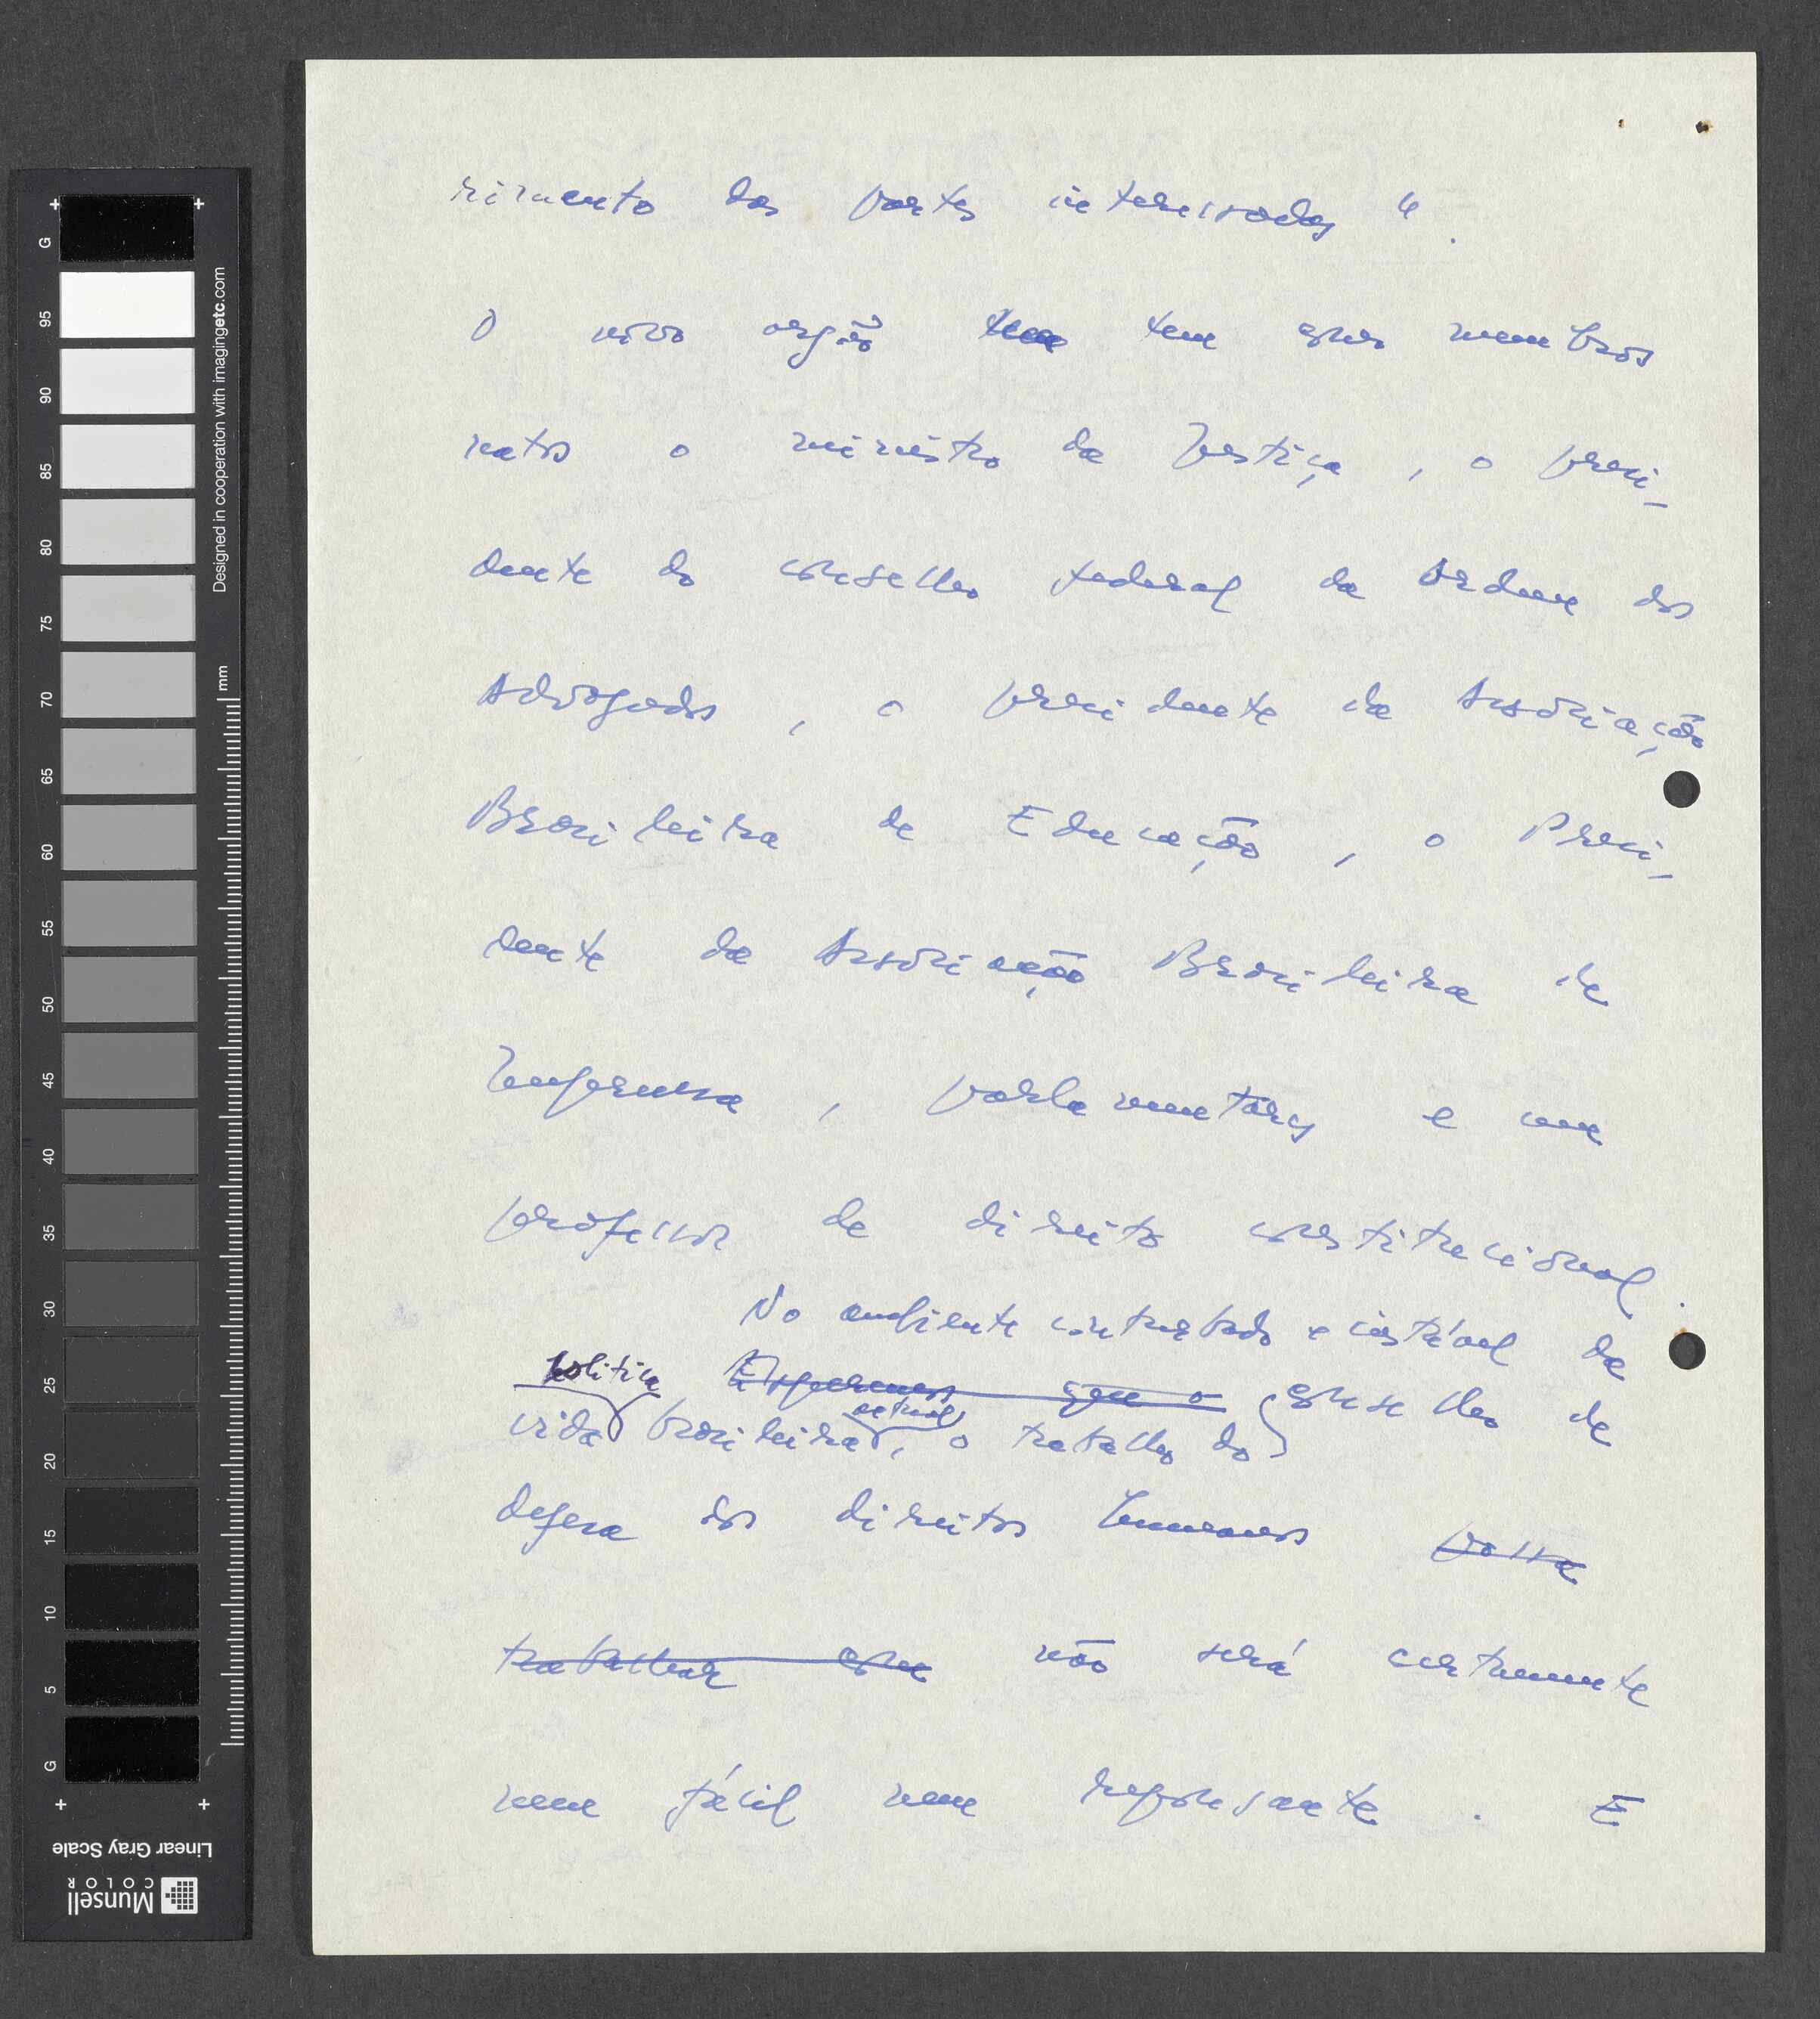 rimento das partes interessadas".
O novo orgão tem tem como membros
natos o ministro da Justiça, o presi-
dente do conselho federal da Ordem dos
Advogados, o presidente da Associação
Brasileira de Educação, o Presi-
dente da Associação Brasileira de
Imprensa, parlamentares e um
professor de direito constitucional.
No ambiente conturbado e instável da
politica
Esperemos que o conselho de
actual
vida brasileira, o trabalho do
defesa dos direitos humanos possa
trabalhar com não será certamente
nem fácil nem repousante. E
G
95
90
85
80
75
70
65
60
55
50
45
40
35
30
25
20
15
10
5
G
mm
Designed in cooperation with imagingetc.com
Linear Gray Scale
Munsell
COLOR